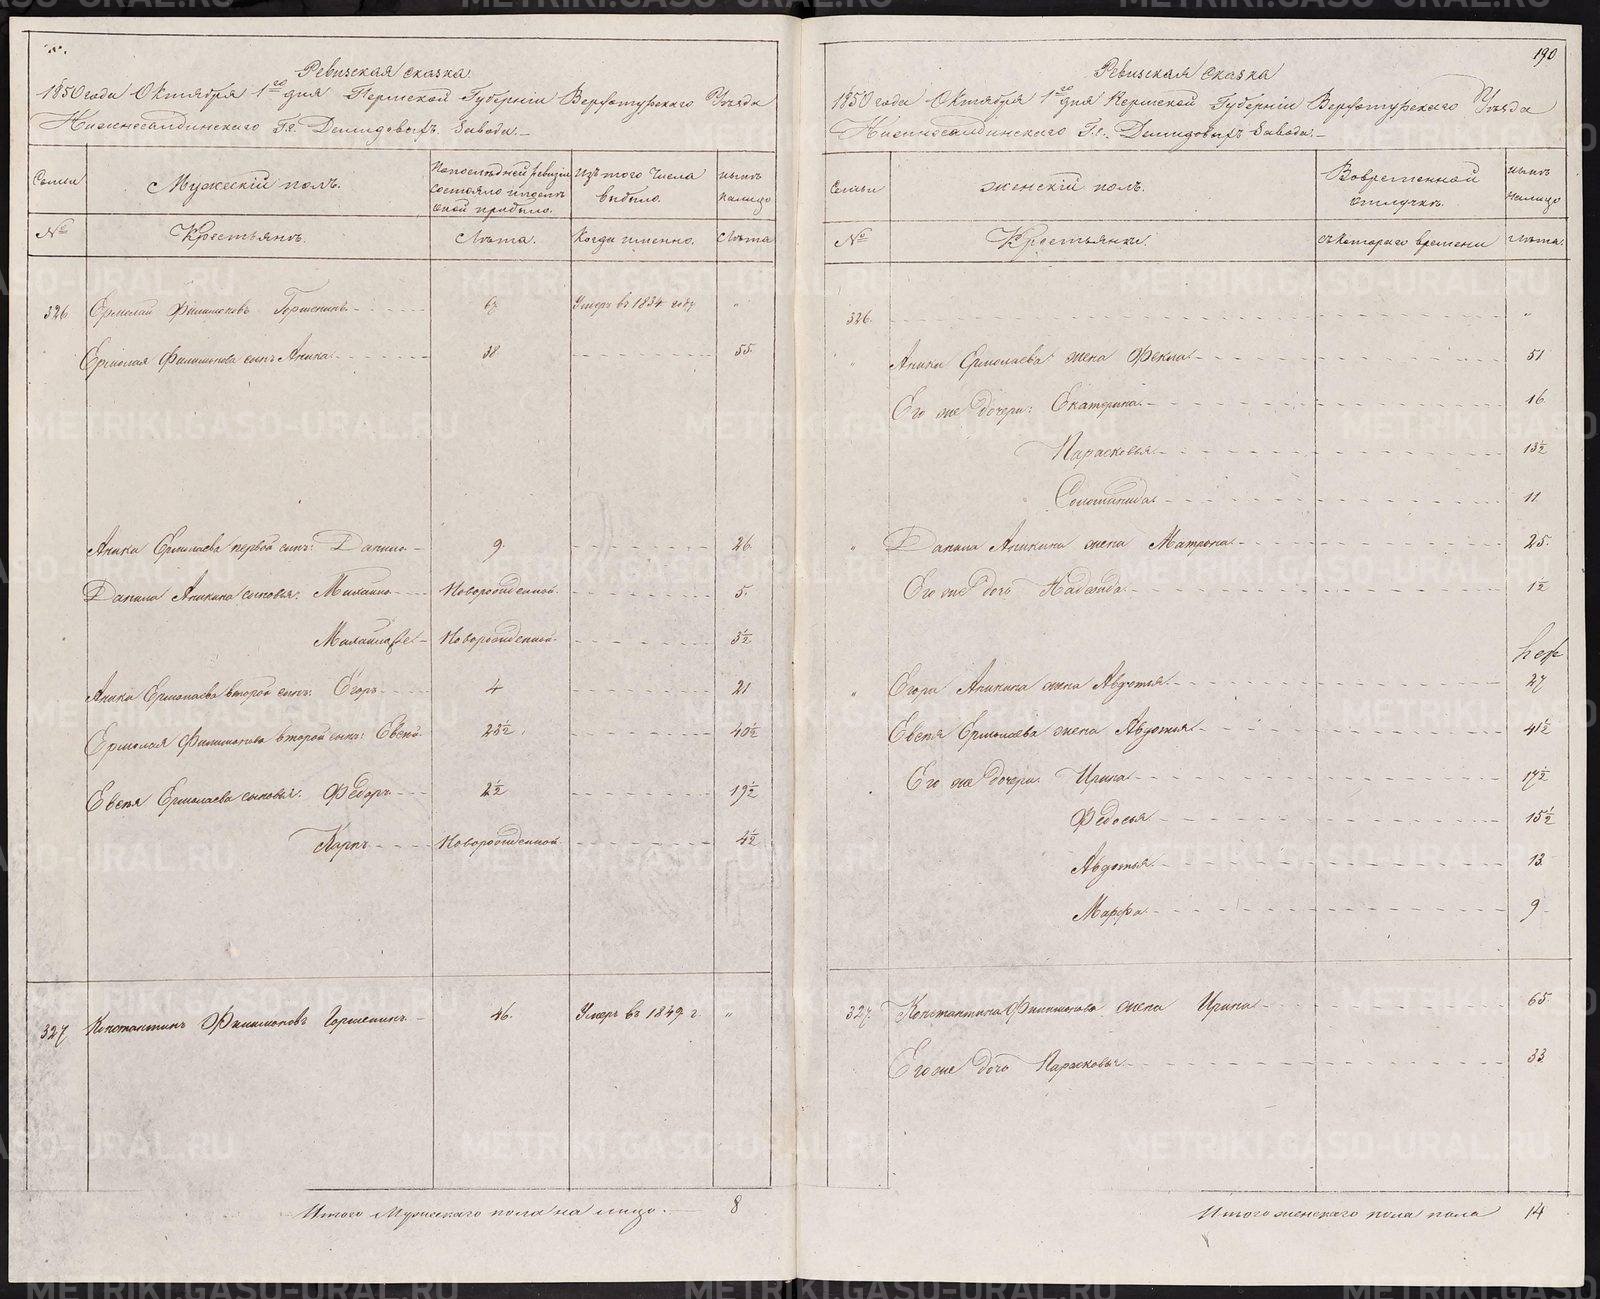 Ревизская сказка
1850 года Октября 1го дня Пермской Губернии Верхотурскаго Уезда
Нижнесалдинскаго Г.г. Демидовыхъ Завода.
Семьи
Мужескій полъ.
По последней ревизіи состояло и после оной прибыло.
Изъ того числа выбыло.
ныне налицо
№
Крестьянъ.
Лета.
Когда именно.
Лета
326. Ермолай Филимоновъ Горшенинъ 67 Умеръ въ 1834 году "
Ермолая Филимонова сынъ Аника 38 55.
Аника Ермолаева первой сынъ: Данило 9. 26.
Данила Аникина сыновья: Михаило Новорожденной. 5.
Михаило 2й Новорожденной. 3½
Аника Ермолаева второй сынъ: Егоръ 4 21
Ермолая Филимонова второй сынъ: Евсей 23½. 40½
Евсея Ермолаева сыновья: Федоръ 2½ 19½
Карпъ Новорожденной. 4½
327 Константинъ Филимоновъ Горшенинъ 46. Умеръ въ 1849 г. "
Итого Мужескаго пола на лицо. 8
190
Ревизская сказка
1850 года Октября 1го дня Пермской Губерніи Верхотурскаго Уезда
Нижнесалдинскаго Г.г. Демидовыхъ Завода.
Семьи
Женскій полъ.
Во временной отлучке.
ныне налицо
№
Крестьянки.
съ котораго времени
Лета.
326. "
" Аники Ермолаева жена Фекла 51
Его же дочери: Екатерина. 16
Парасковья 13½
Соломинида 11
" Данила Аникина жена Матрена 25.
Его же дочь Надежда 1½
" Егора Аникина жена Авдотья 27
Евсея Ермолаева жена Авдотья 41½
Его же дочери: Ирина 17½
Федосья 15½
Авдотья 13
Марфа 9
327. Константина Филимонова жена Ирина 65.
Его же дочь Парасковья 33
Итого женскаго пола 14
METRIKI.GASO-URAL.RU